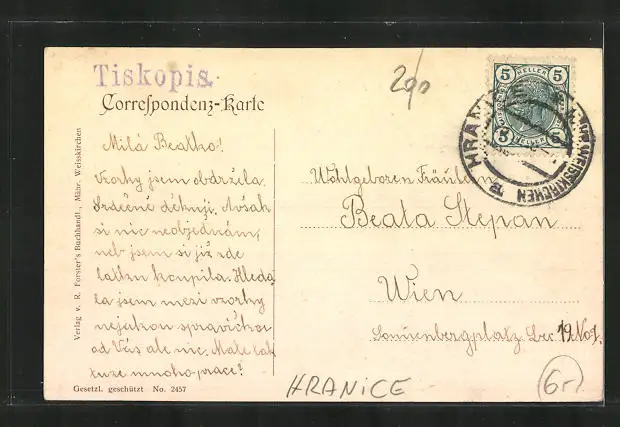 Tiskopis.
Correspondenz-Karte
290
5 HELLER 5
5 5
HRANICE
MÄHR. WEISSKIRCHEN
Verlag v. R. Forster's Buchhandl., Mähr. Weisskirchen
Milá Beatko!
Vzorky jsem obdržela.
Srdečně děkuji. Avšak
si nic neobjednám,
neb jsem si již zde
látku koupila. Hleda
la jsem mezi vzorky
nějakou
od Vás ale nic. Máte tak
tuze mnoho práce?
Wohlgeboren Fräulein
Beata Stepan
Wien
19 No 1.
Gesetzl. geschützt No. 2457
HRANICE
6.-